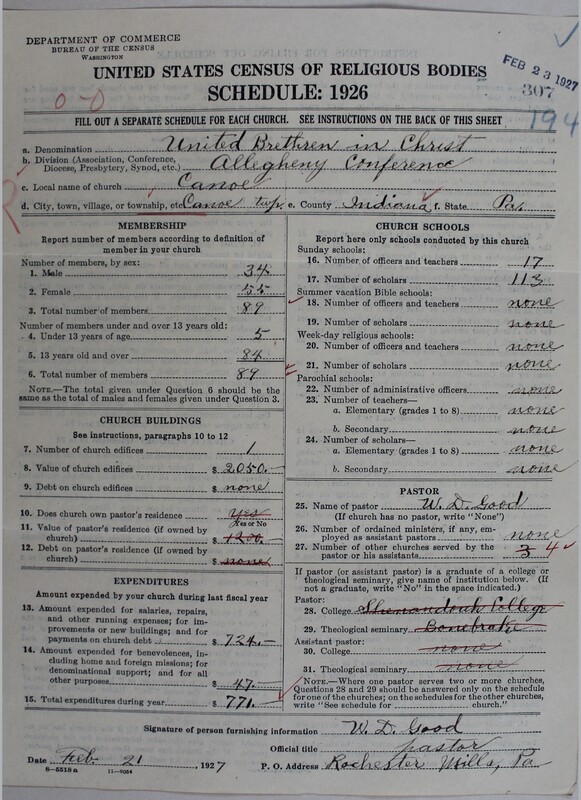 DEPARTMENT OF COMMERCE
BUREAU OF THE CENSUS
WASHINGTON
FEB 23 1927
UNITED STATES CENSUS OF RELIGIOUS BODIES
SCHEDULE: 1926
307
0-0
194
FILL OUT A SEPARATE SCHEDULE FOR EACH CHURCH. SEE INSTRUCTIONS ON THE BACK OF THIS SHEET
a. Denomination United Brethren in Christ
b. Division (Association, Conference, Diocese, Presbytery, Synod, etc.) Allegheny Conference
c. Local name of church Canoe
d. City, town, village, or township, etc. Canoe twp. e. County Indiana f. State Pa.
MEMBERSHIP
Report number of members according to definition of member in your church
Number of members, by sex:
1. Male 34
2. Female 55
3. Total number of members 89
Number of members under and over 13 years old:
4. Under 13 years of age 5
5. 13 years old and over 84
6. Total number of members 89
NOTE.—The total given under Question 6 should be the same as the total of males and females given under Question 3.
CHURCH BUILDINGS
See instructions, paragraphs 10 to 12
7. Number of church edifices 1
8. Value of church edifices $ 2050.—
9. Debt on church edifices $ none
10. Does church own pastor's residence Yes
Yes or No
11. Value of pastor's residence (if owned by church) $ 1200.—
12. Debt on pastor's residence (if owned by church) $ none
EXPENDITURES
Amount expended by your church during last fiscal year
13. Amount expended for salaries, repairs, and other running expenses; for improvements or new buildings; and for payments on church debt $ 724.—
14. Amount expended for benevolences, including home and foreign missions; for denominational support; and for all other purposes $ 47.—
15. Total expenditures during year $ 771.—
CHURCH SCHOOLS
Report here only schools conducted by this church
Sunday schools:
16. Number of officers and teachers 17
17. Number of scholars 113
Summer vacation Bible schools:
18. Number of officers and teachers none
19. Number of scholars none
Week-day religious schools:
20. Number of officers and teachers none
21. Number of scholars none
Parochial schools:
22. Number of administrative officers none
23. Number of teachers—
a. Elementary (grades 1 to 8) none
b. Secondary none
24. Number of scholars—
a. Elementary (grades 1 to 8) none
b. Secondary none
PASTOR
25. Name of pastor W. D. Good
(If church has no pastor, write "None")
26. Number of ordained ministers, if any, employed as assistant pastors none
27. Number of other churches served by the pastor or his assistants 3 4
If pastor (or assistant pastor) is a graduate of a college or theological seminary, give name of institution below. (If not a graduate, write "No" in the space indicated.)
Pastor:
28. College Shenandoah College
29. Theological seminary Bonebrake
Assistant pastor:
30. College none
31. Theological seminary none
NOTE.—Where one pastor serves two or more churches, Questions 28 and 29 should be answered only on the schedule for one of the churches; on the schedules for the other churches, write "See schedule for church."
Signature of person furnishing information W. D. Good
Official title pastor
Date Feb. 21, 1927 P. O. Address Rochester Mills, Pa
8—5518 a 11—9054